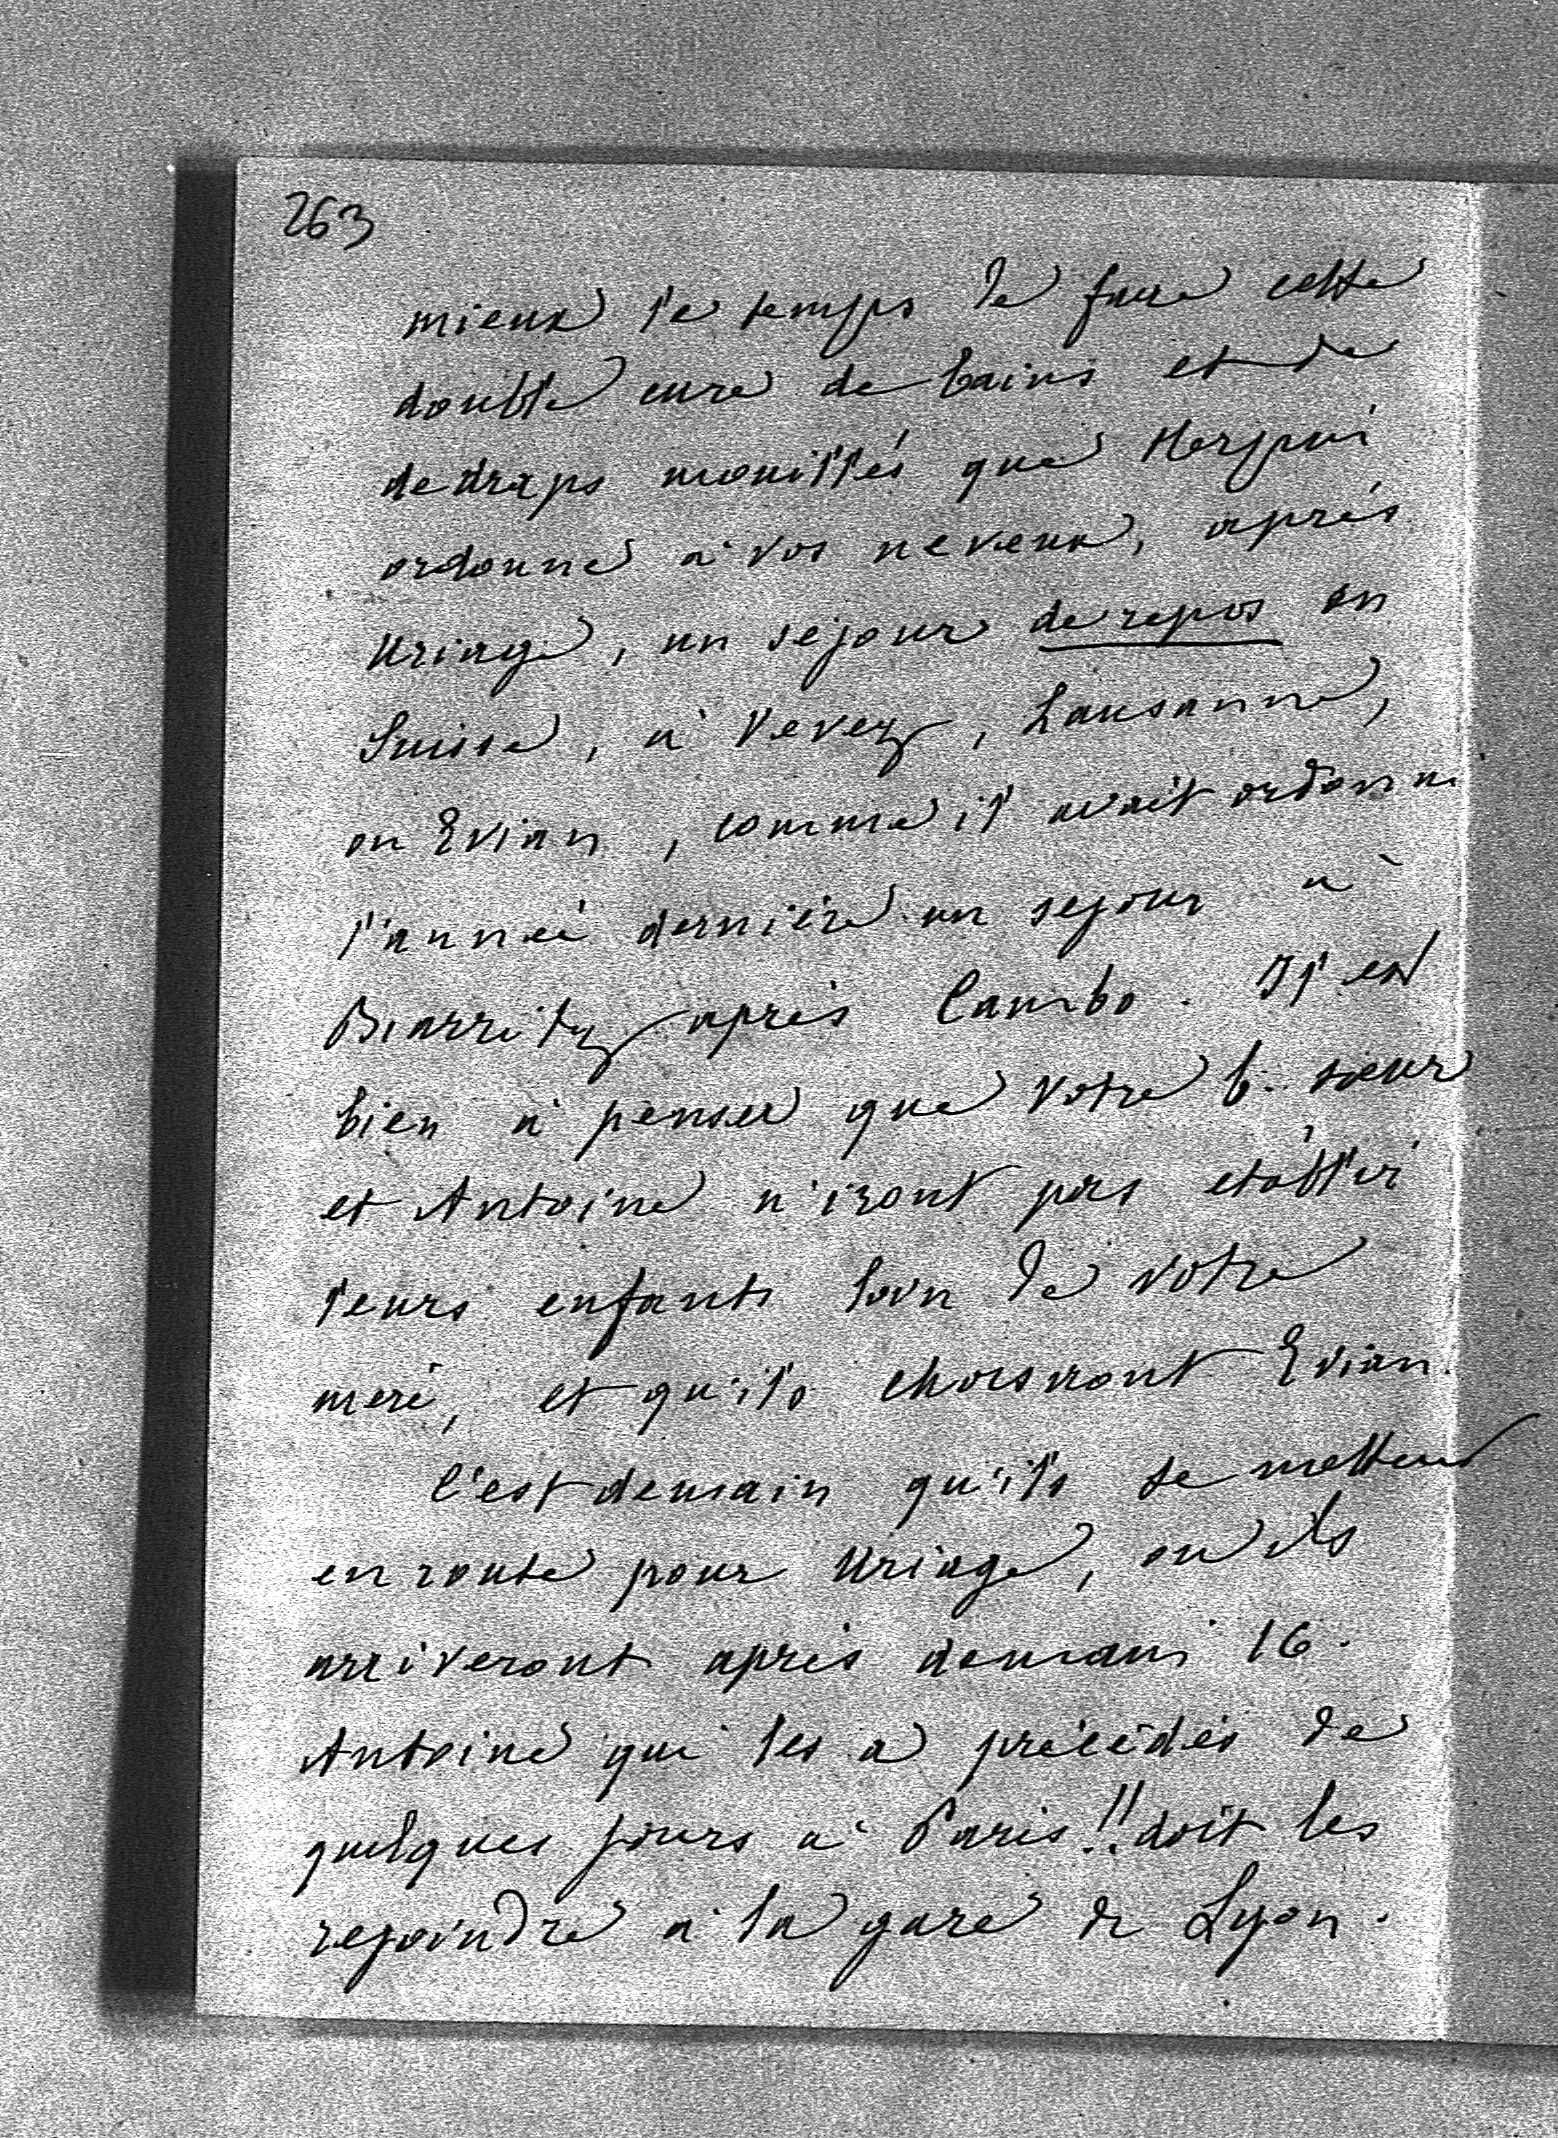 263
mieux le temps de faire cette
double cure de bains et de
de draps mouillés que Herpin
ordonne à vos neveux, après
Uriage, un séjour de repos en
Suisse, à Vevey, Lausanne,
ou Evian, comme il avait ordonné
l'année dernière un sejour à
Biarritz après Cambo. Il est
bien à penser que votre b. sœur
et Antoine n'iront pas etablir
leurs enfants loin de votre
mere, et qu'ils choisiront Evian.
C'est demain qu'ils se mettent
en route pour Uriage, ou ils
arriveront après demain 16.
Antoine qui les a précédés de
quelques jours à Paris!! doit les
rejoindre à la gare de Lyon.